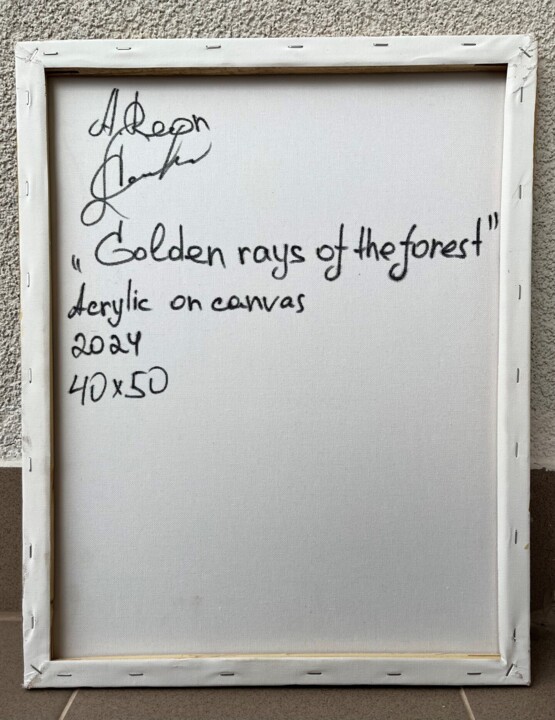 „Golden rays of the forest"
Acrylic on canvas
2024
40x50